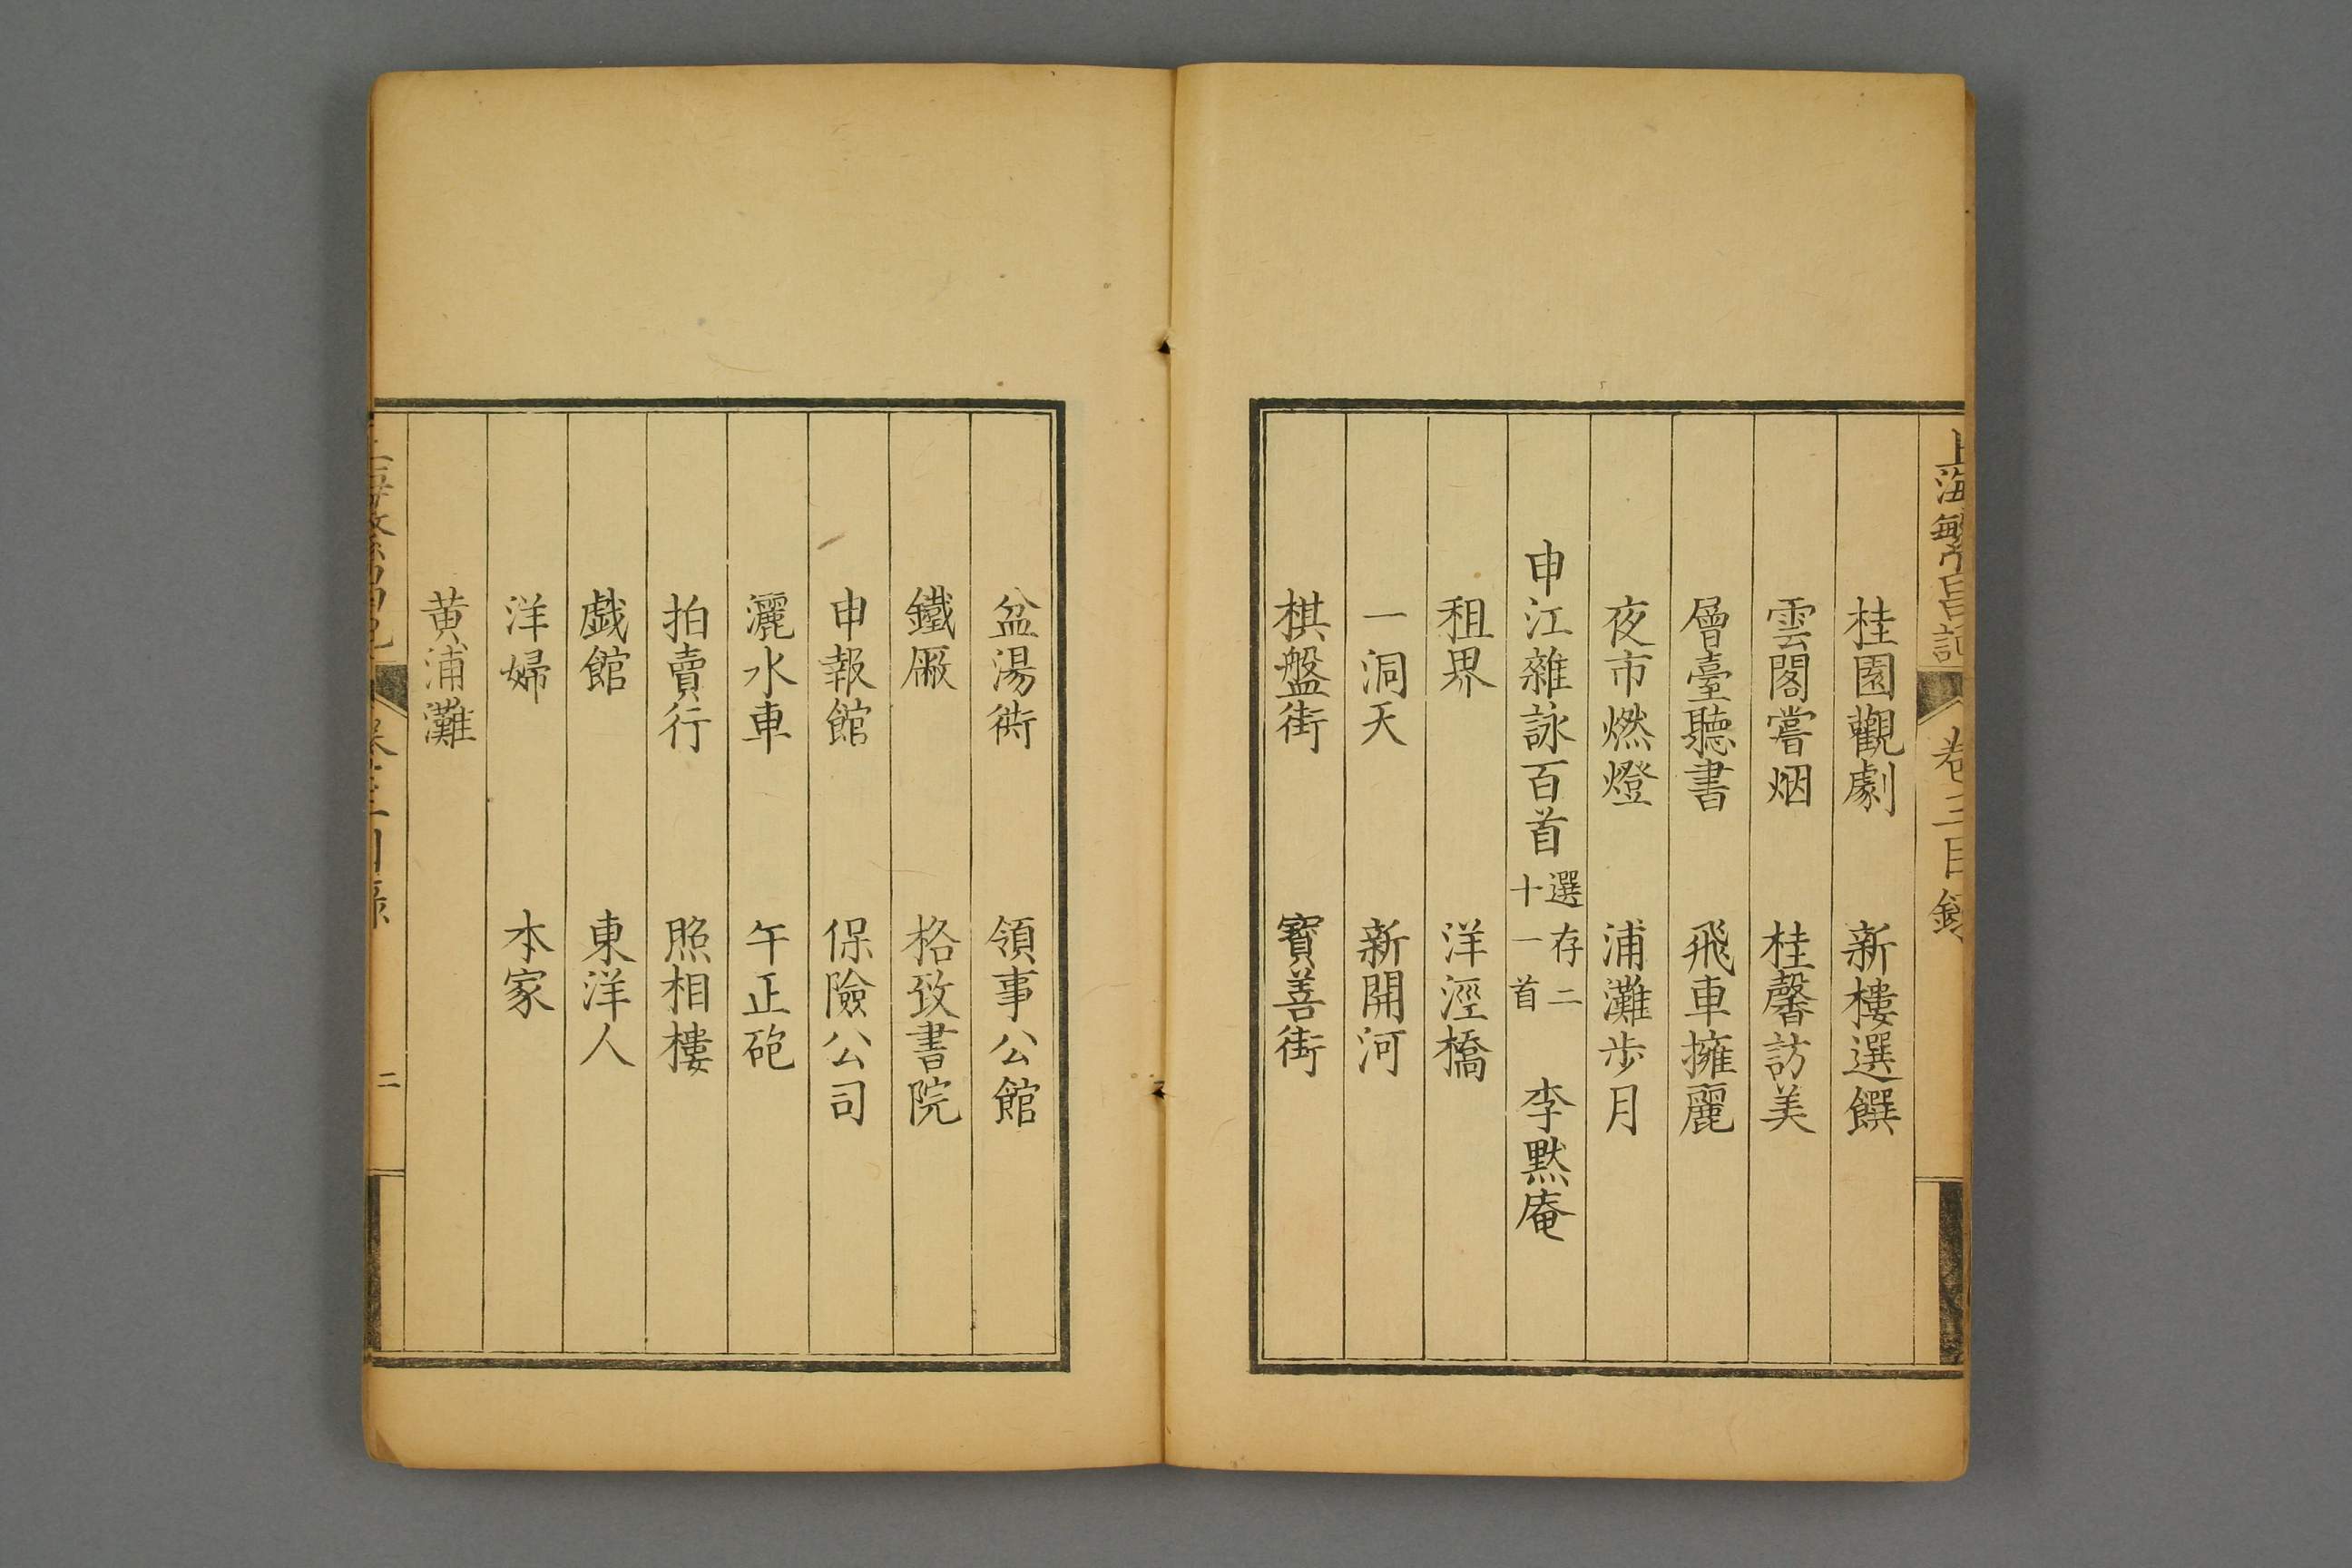 上海繁昌記 卷三目錄
桂園觀劇 新樓選饌
雲閣嘗烟 桂馨訪美
層臺聽書 飛車擁麗
夜市燃燈 浦灘步月
申江雜詠百首 選存二十一首 李默庵
租界 洋涇橋
一洞天 新開河
棋盤街 寶善街
盆湯衖 領事公館
鐵厰 格致書院
申報館 保險公司
灑水車 午正砲
拍賣行 照相樓
戲館 東洋人
洋婦 本家
黄浦灘
上海繁昌記 卷三目錄 二